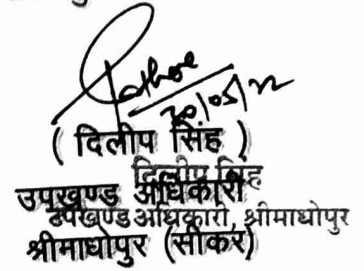 Rathore
30/05/22
( दिलीप सिंह )
दिलीप सिंह
उपखण्ड अधिकारी
उपखण्ड अधिकारी, श्रीमाधोपुर
श्रीमाधोपुर (सीकर)